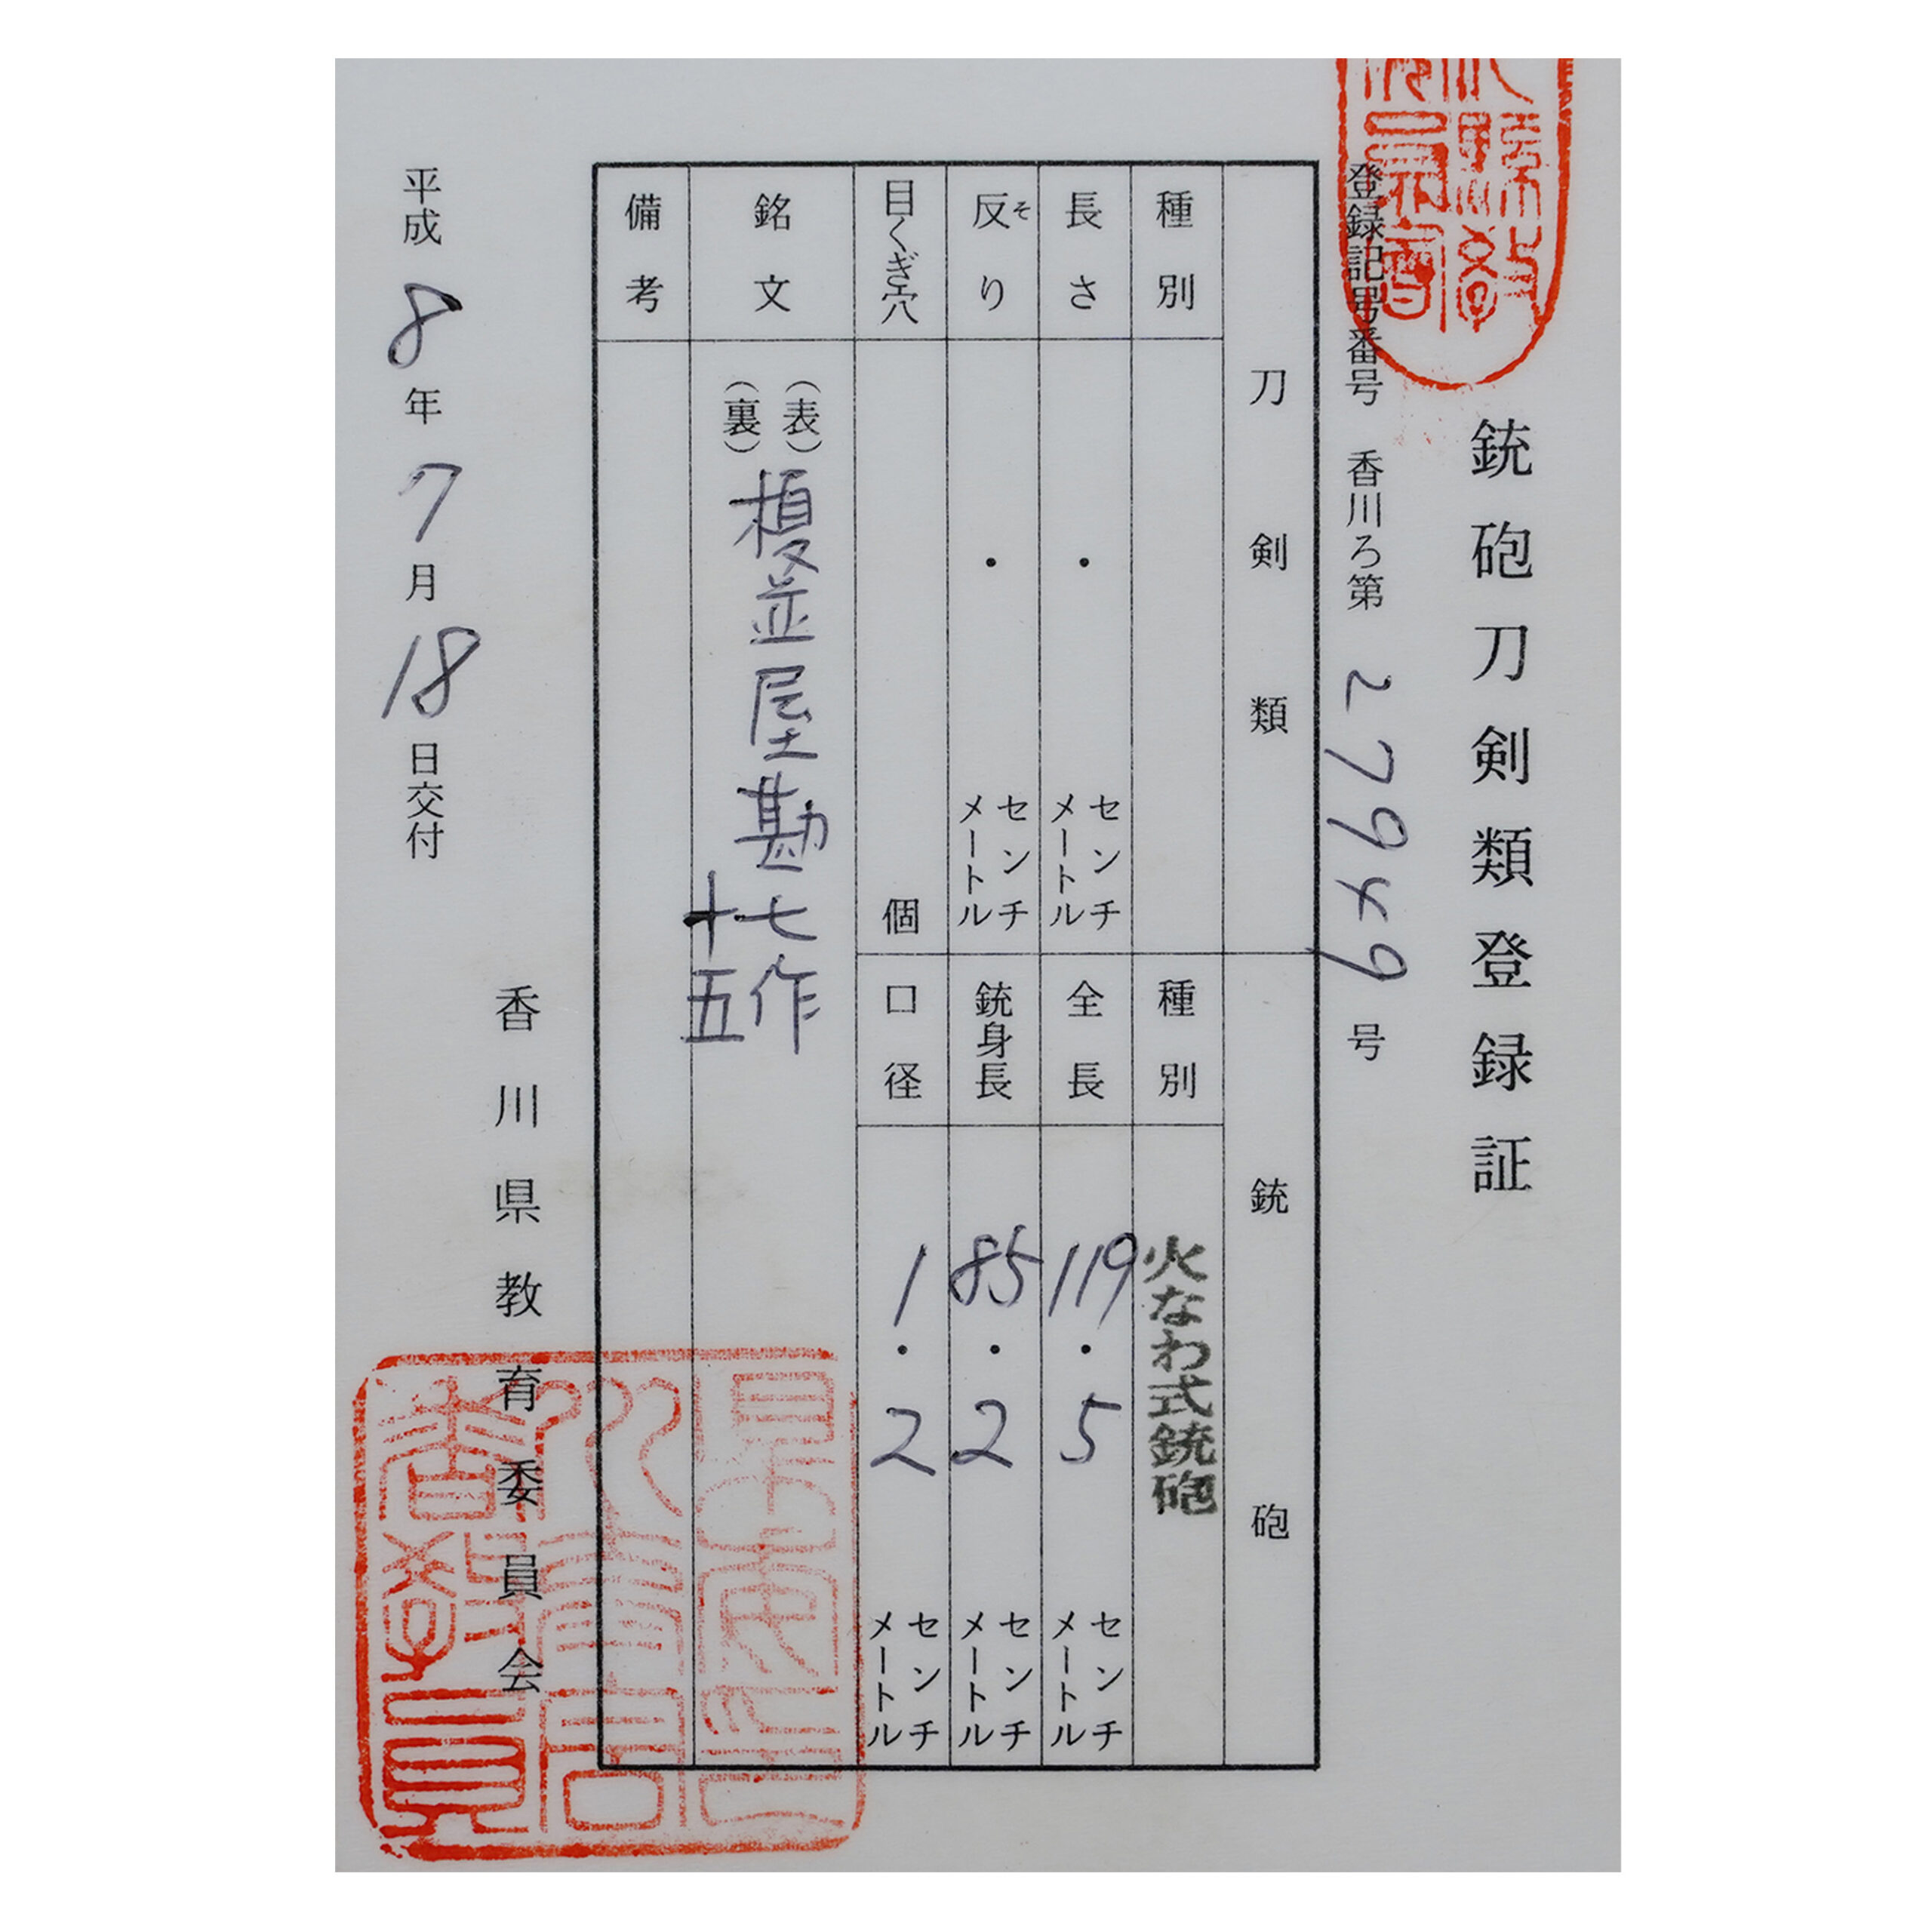 銃砲刀剣類登録証
登録記号番号 香川ろ第 27949 号
刀剣類 銃砲
種別 種別 火なわ式銃砲
長さ ・ センチメートル 全長 119・5 センチメートル
反り そ ・ センチメートル 銃身長 85・2 センチメートル
目くぎ穴 個 口径 1・2 センチメートル
銘文 (表) 榎並屋勘七作
(裏) 十五
備考
香川県教育委員会
平成 8 年 7 月 18 日交付